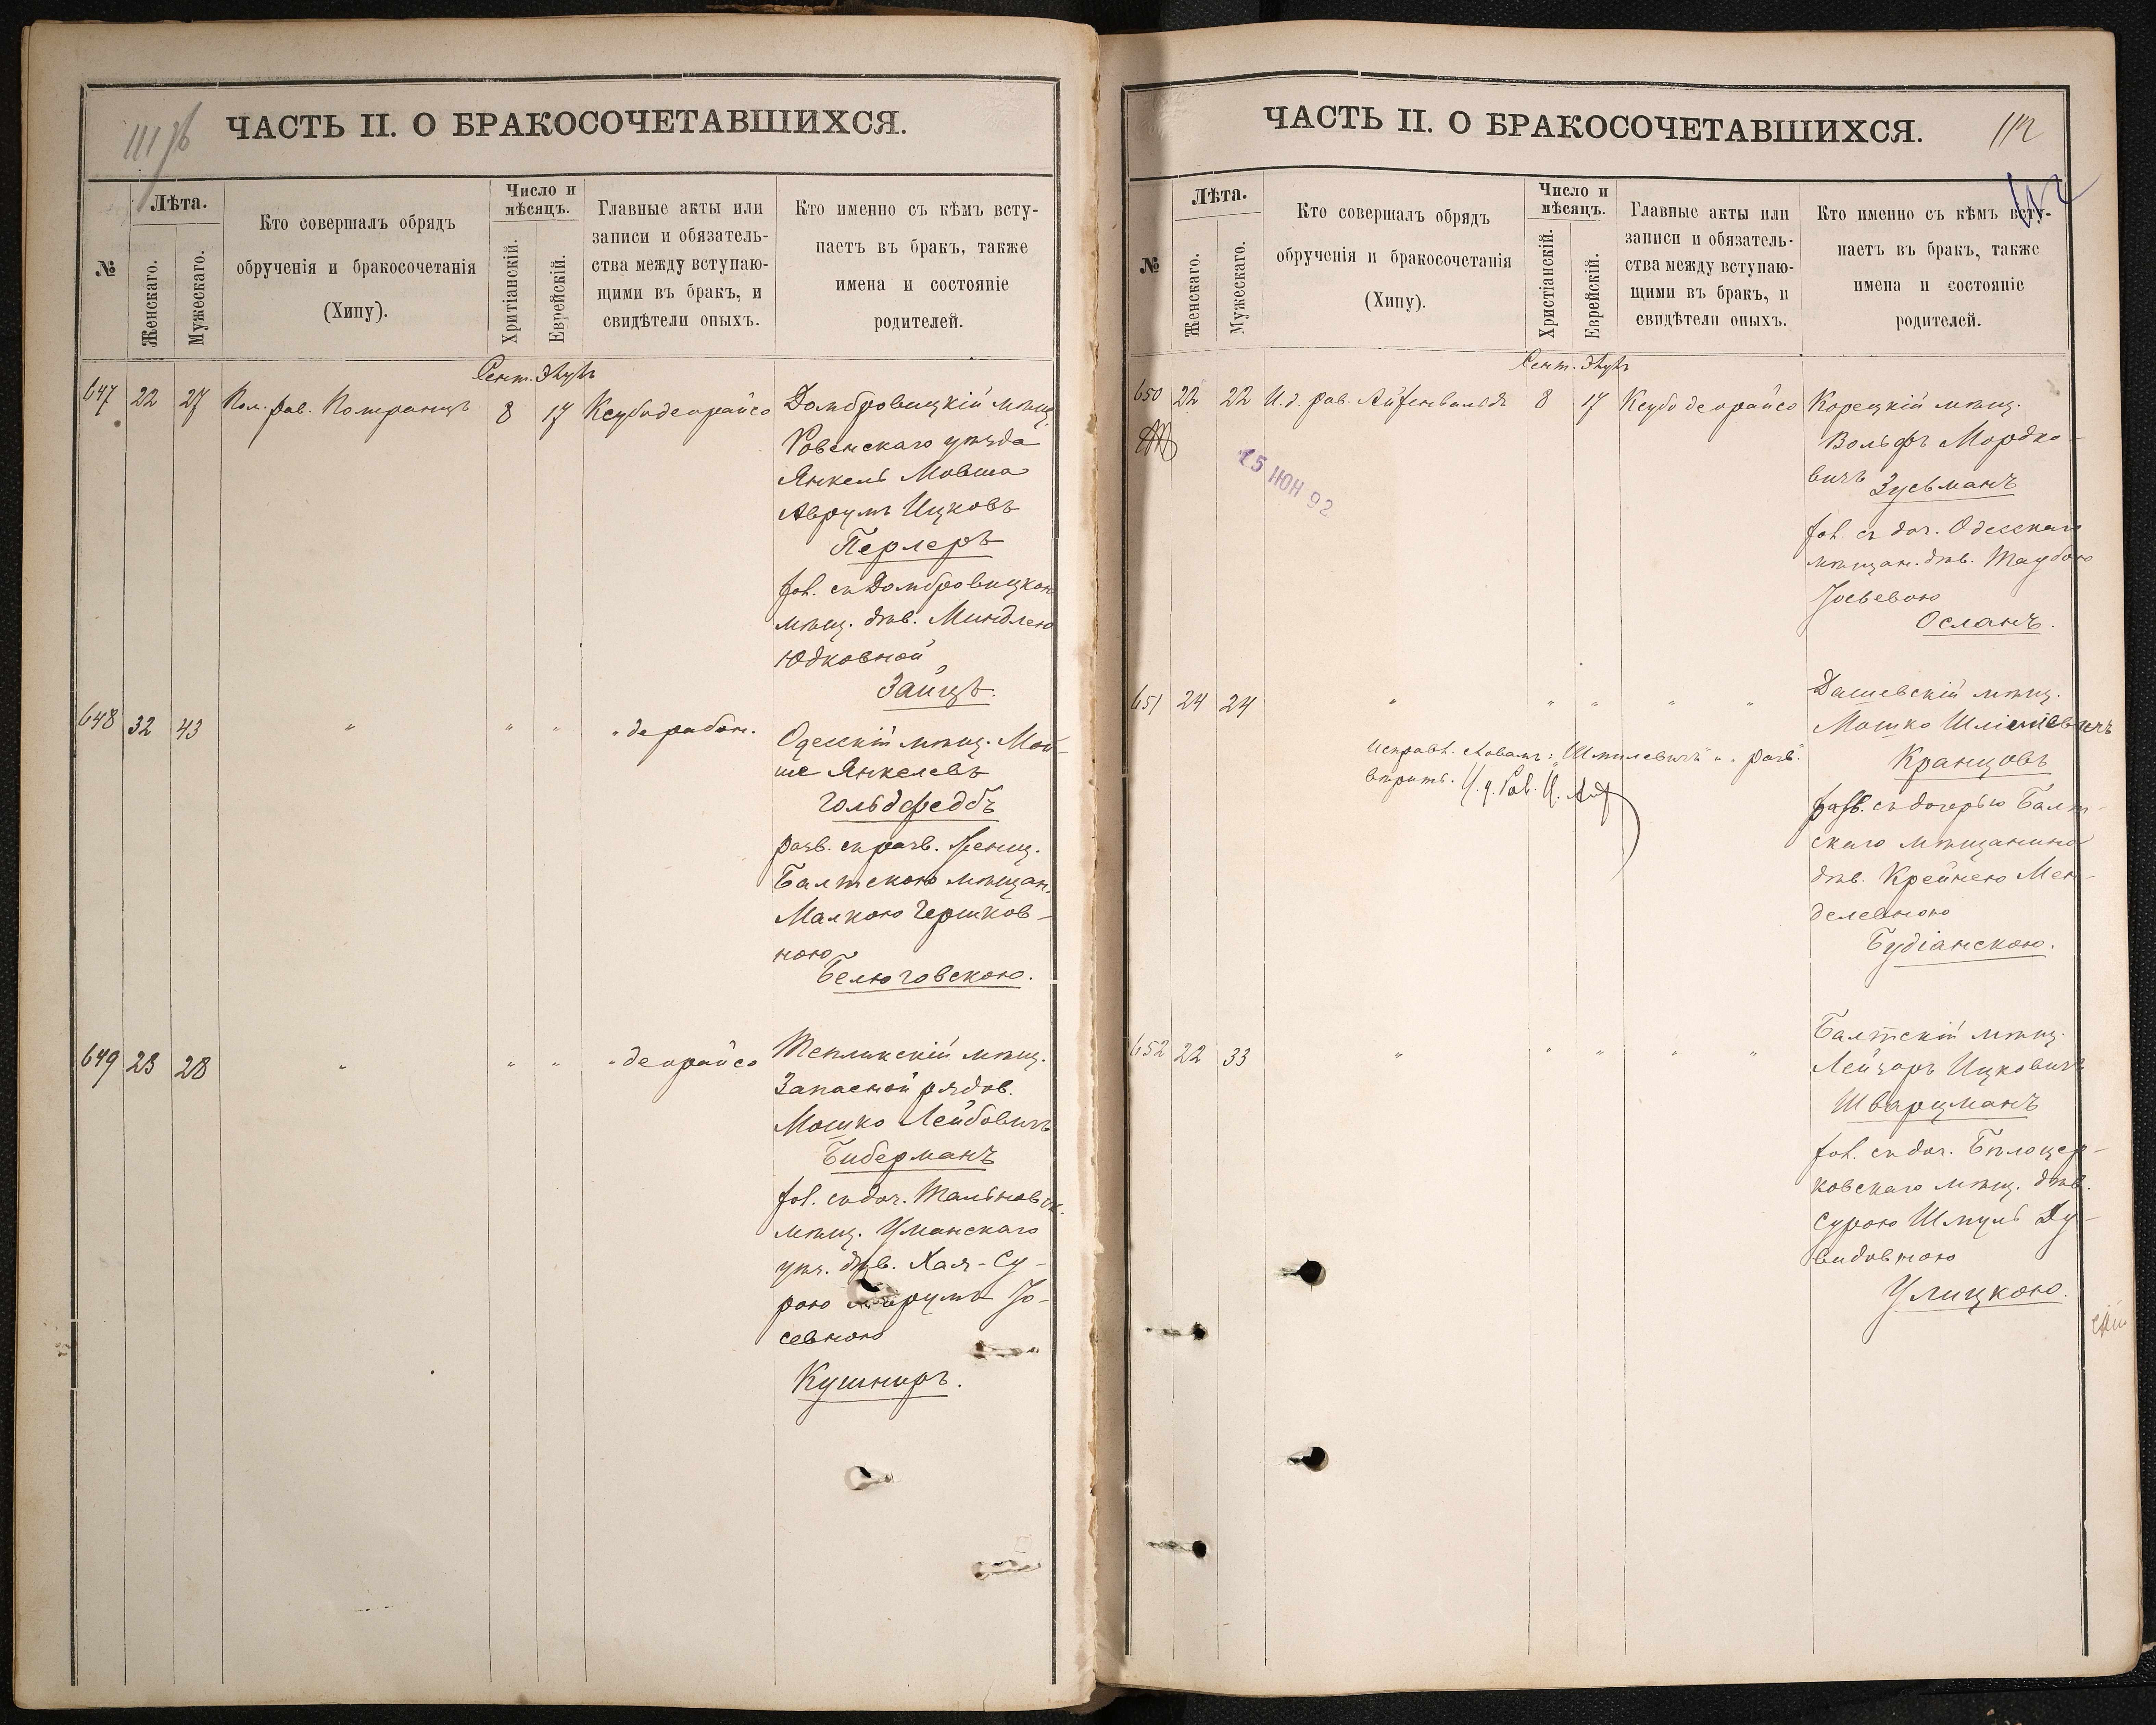 111 об
ЧАСТЬ II. О БРАКОСОЧЕТАВШИХСЯ.
№
Лѣта.
Женскаго.
Мужескаго.
Кто совершалъ обрядъ
обрученія и бракосочетанія
(Хипу).
Число и
мѣсяцъ.
Хритіанскій.
Еврейскій.
Главные акты или
записи и обязатель-
ства между вступаю-
щими въ бракъ, и
свидѣтели оныхъ.
Кто именно съ кѣмъ всту-
паетъ въ бракъ, также
имена и состояніе
родителей.
Сент. Элулъ
647 22 27 Пом. рав. Померанцъ 8 17 Ксубодеорайсо
Домбровицкій мѣщ.
Ровенскаго уѣзда
Янкель Мовша
Аврумъ Ицковъ
Перлеръ
хол. съ Домбровицкою
мѣщ. дѣв. Миндлею
Юдковной
Зайцъ.
648 32 43 " " " " де рабон.
Одесскій мѣщ. Мой-
ше Янкелевъ
Гольдфедбъ
разв. съ разв. женщ.
Балтскою мѣщан.
Малкою Гершков-
ною
Белюговскою.
649 23 28 " " " " деорайсо
Тепликскій мѣщ.
Запасной рядов.
Мошко Лейбовичъ
Биберманъ
хол. съ доч. Тальновск.
мѣщ. Уманскаго
уѣз. дѣв. Хая-Су-
рою Аврумъ Іо-
севною
Кушниръ.
ЧАСТЬ II. О БРАКОСОЧЕТАВШИХСЯ.
112
112
№
Лѣта.
Женскаго.
Мужескаго.
Кто совершалъ обрядъ
обрученія и бракосочетанія
(Хипу).
Число и
мѣсяцъ.
Христіанскій.
Еврейскій.
Главные акты или
записи и обязатель-
ства между вступаю-
щими въ бракъ, и
свидѣтели оныхъ.
Кто именно съ кѣмъ всту-
паетъ въ бракъ, также
имена и состояніе
родителей.
Сент. Элулъ
650 22 22 И. д. рав. Айзенвальдъ 8 17 Ксубо деорайсо
15 ІЮН 92
Корецкій мѣщ.
Вольфъ Мордко-
вичъ Зусьманъ
хол. съ доч. Одесскаго
мѣщан. дѣв. Таубою
Іосьевою
Осланъ.
651 24 24 " " " " "
Дашевскій мѣщ.
Мошко Шмілевичъ
Кранцовъ
разв. съ дочерью Балт-
скаго мѣщанина
дѣв. Крейнею Мен-
делевною
Будіанскою.
Исправл. словамъ: "Шмилевичъ" и "разв."
вѣрить. И. д. Рав. И.
652 22 33 " " " " "
Балтскій мѣщ.
Лейзоръ Ицковичъ
Шварцманъ
хол. съ доч. Бѣлоцер-
ковскаго мѣщ. дѣв.
Сурою Шмуль Ду-
видовною
Улицкою.